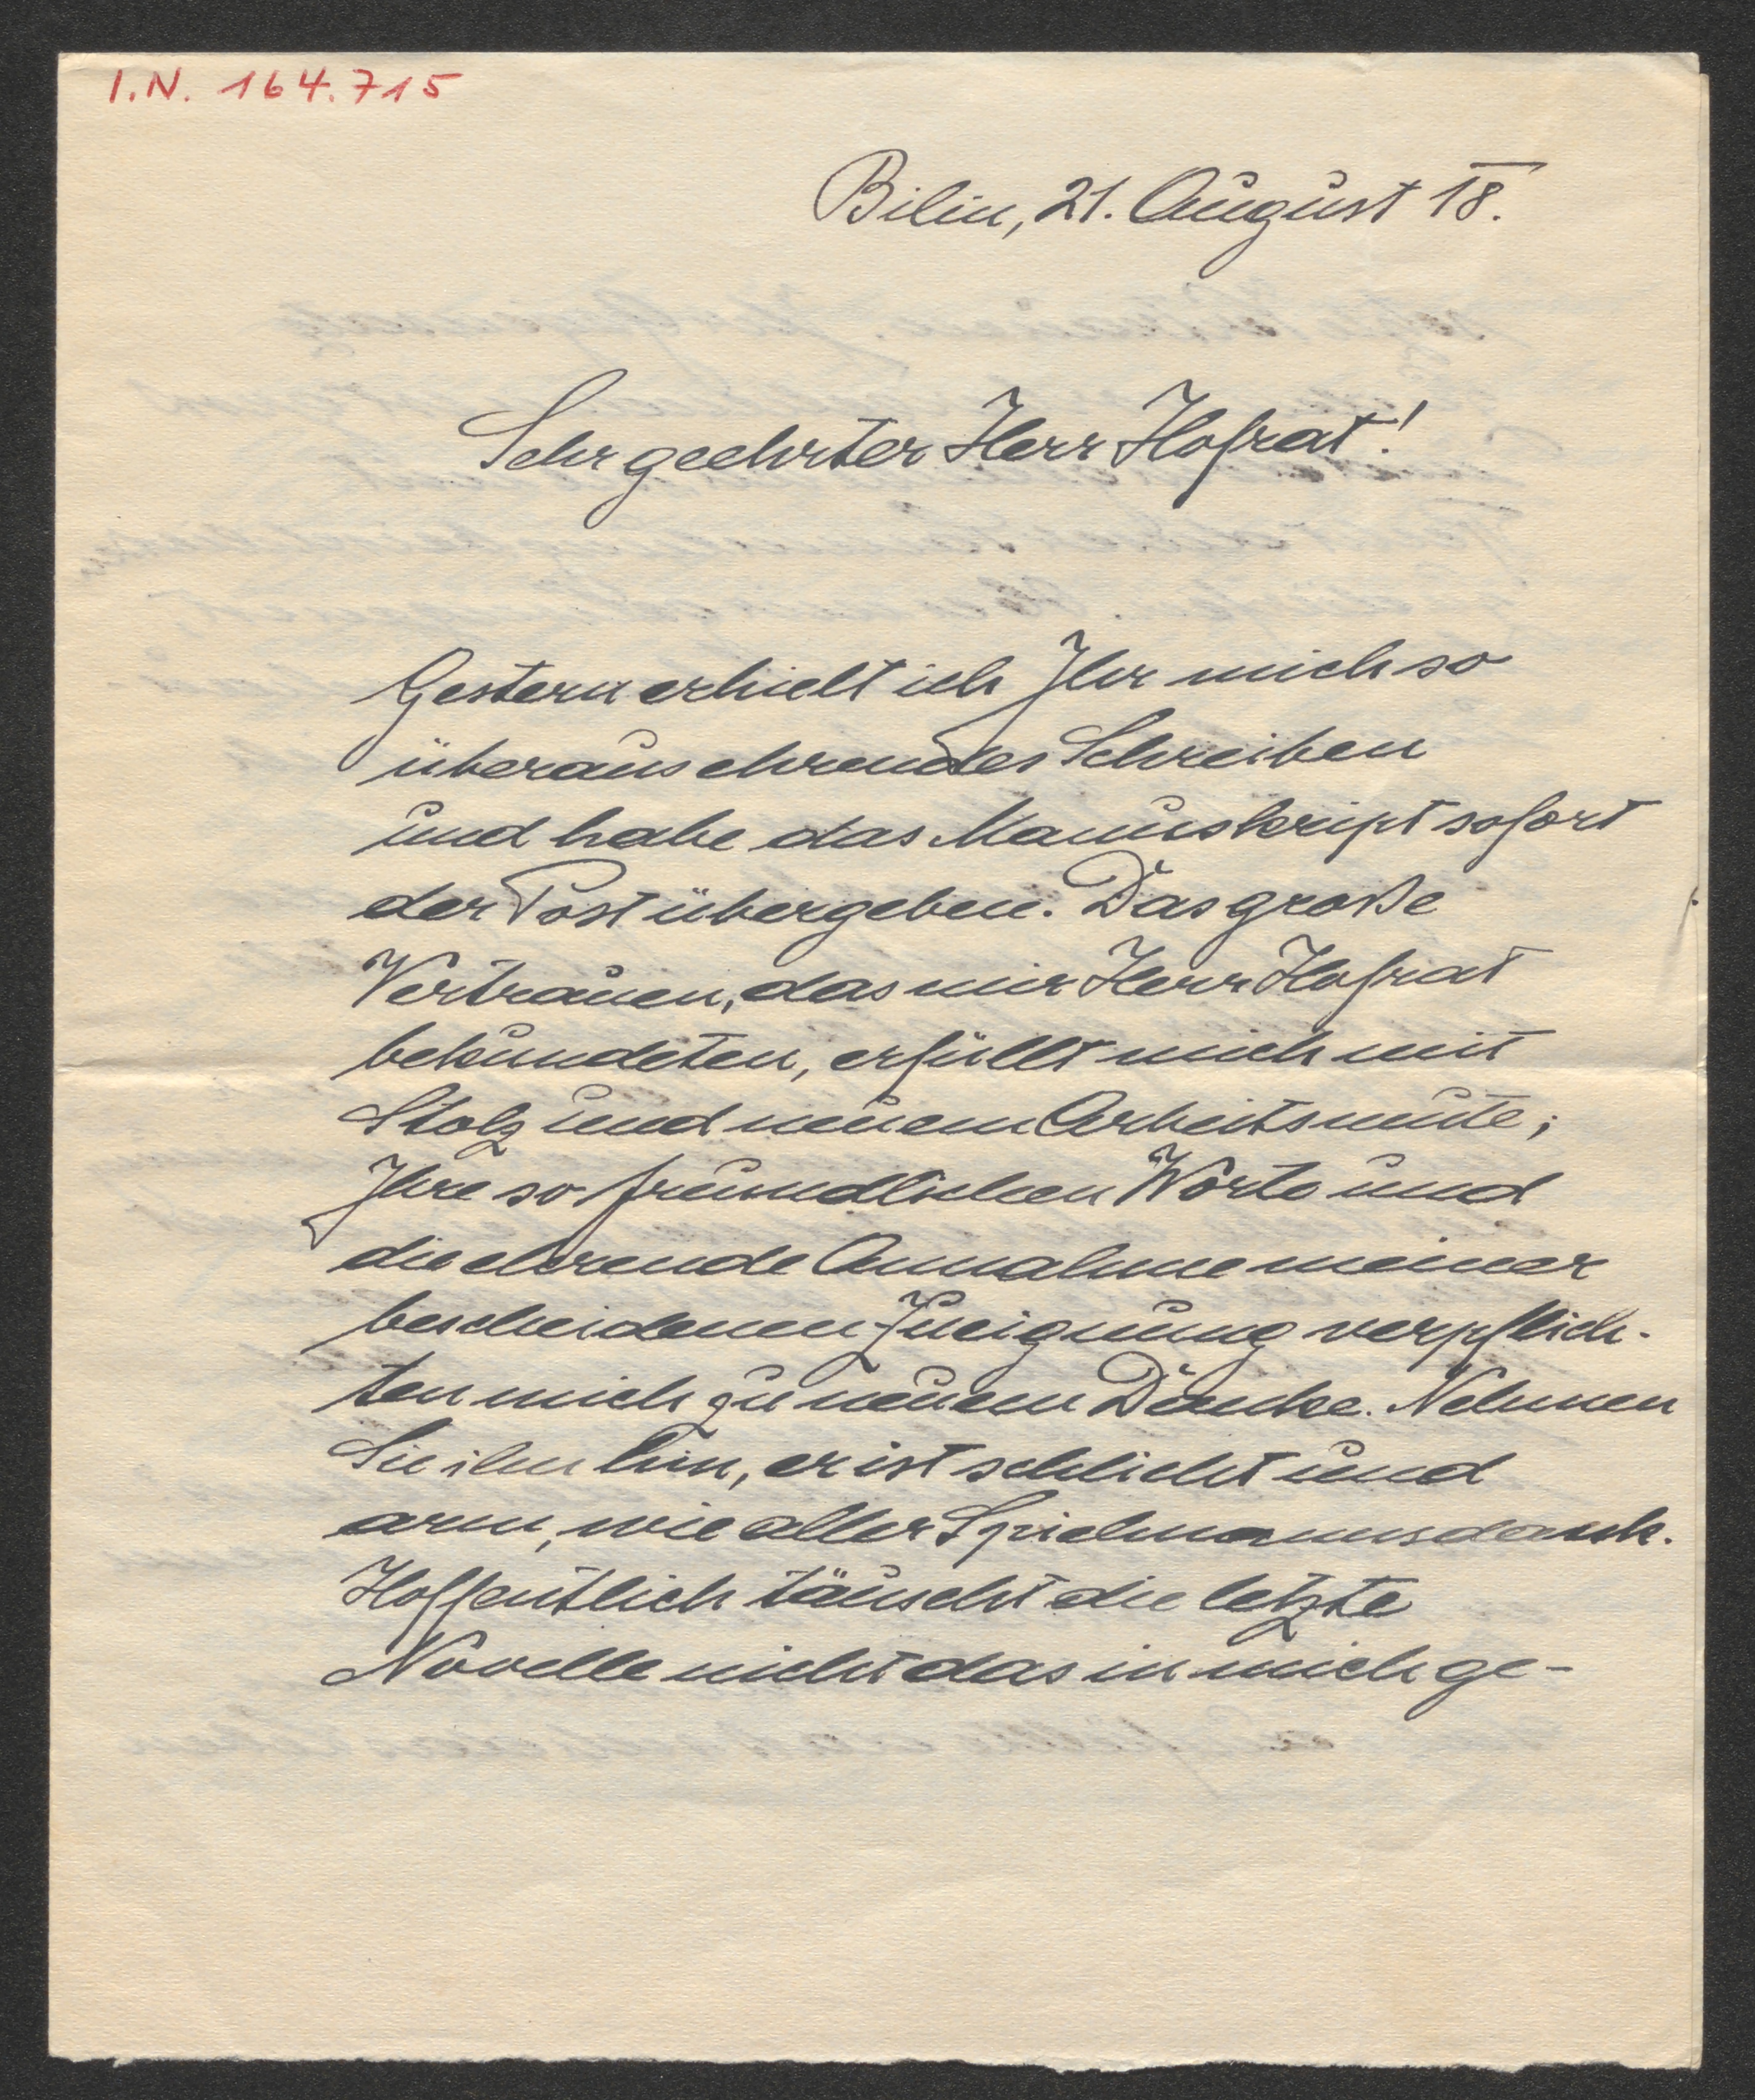 I.N. 164.715
Bilin, 21. August 18.
Sehr geehrter Herr Hofrat!
Gestern erhielt ich Ihr mich so
überaus ehrendes Schreiben
und habe das Manuskript sofort
der Post übergeben. Das große
Vertrauen, das mir Herr Hofrat
bekundeten, erfüllt mich mit
Stolz und neuem Arbeitsmute;
Ihre so freundlichen Worte und
die ehrende Annahme meiner
bescheidenen Zueignung verpflich-
ten mich zu neuem Danke. Nehmen
Sie ihn hin, er ist schlicht und
arm, wie aller Spielmannsdank.
Hoffentlich täuscht die letzte
Novelle nicht das in mich ge-